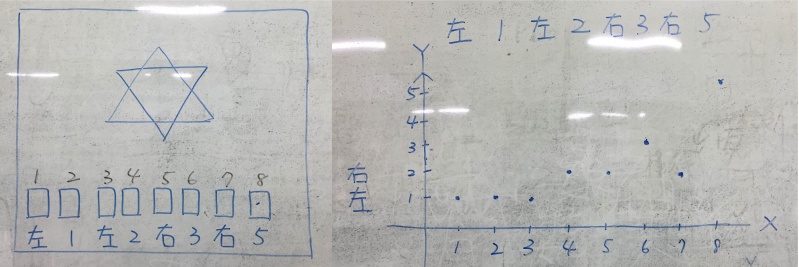 1 2 3 4 5 6 7 8
左 1 左 2 右 3 右 5
左 1 左 2 右 3 右 5
Y
5
4
3
右 2
左 1
X
1 2 3 4 5 6 7 8